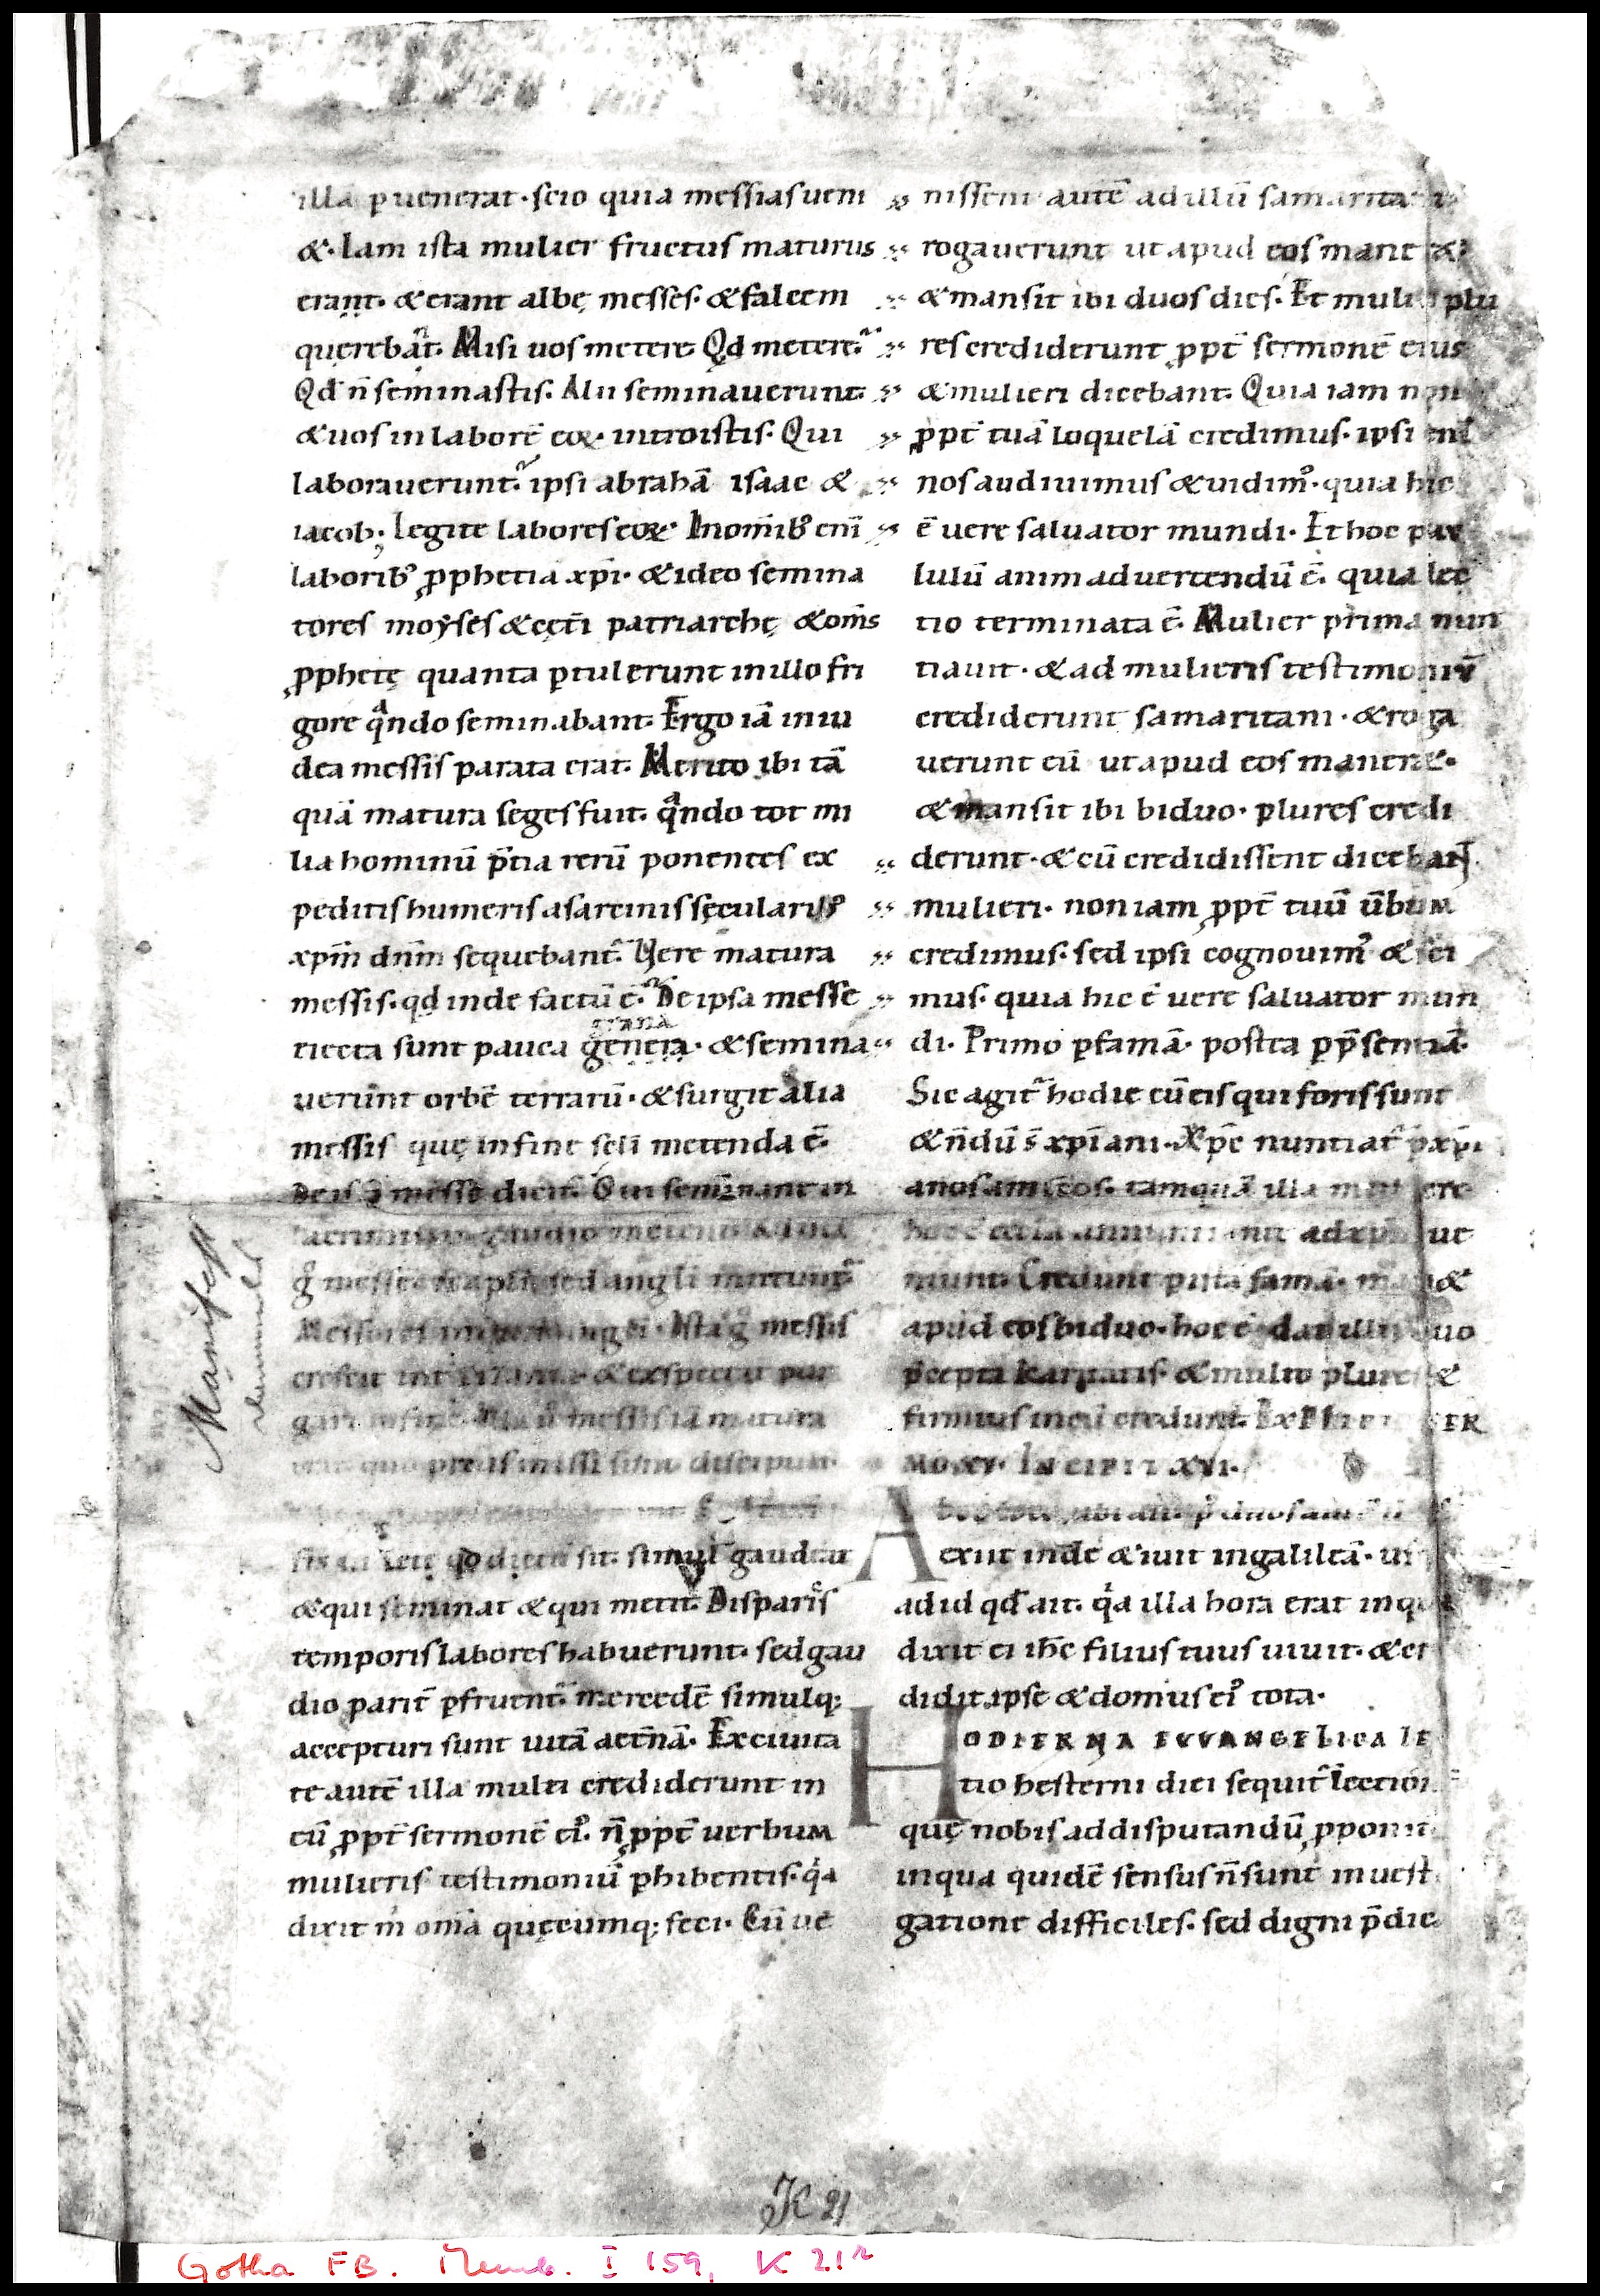 illa puenerat · scio quia messias ueni
&. Iam ista mulier fructus maturus
erant. & erant albę messes. & falcem
querebat. Misi uos metere. Qđ metere.
Qđ n̄ seminastis. Alii seminauerunt.
& uos in laborē eoꝝ introistis. Qui
laborauerunt. ipsi abrahā isaac &
iacob. Legite labores eoꝝ. In omib; enī
laborib; ꝓphetia xp̄i · & ideo semina
tores moyses & cęt̄i patriarchę & om̄s
ꝓphetę quanta ptulerunt in illo fri
gore qͣndo seminabant. Ergo iā in iu
dea messis parata erat. Merito ibi tā
quā matura seges fuit. qͣndo tot mi
lia hominū p̄tia rerū ponentes ex
peditis humeris a sarcinis sęcularib;
xp̄m dn̄m sequebant̄. Vere matura
messis. qđ inde factū ē. De ipsa messe
grana
eiecta sunt pauca gencia. & semina
uerunt orbē terrarū. & surgit alia
messis quę in fine sc̄li metenda ē.
messe dicit. Qui seminant in
gaudio
messe sed angli mittunt̄
Messores angli. Ista g̊ messis
crescit int & exspectat pur
gari messis iā matura
erat quo prius missi sunt discipuli.
qđ dictū sit. simul gaudeat
& qui seminat & qui metit. Disparis
temporis labores habuerunt. sed gau
dio parit̄ pfruent̄ mercedē simulq;
accepturi sunt uitā aet̄nā. Ex ciuita
te autē illa multi crediderunt in
eū ꝓpt̄ sermonē ei᷒. n̄ ꝓpt̄ uerbum
mulieris testimoniū phibentis. qͥa
dixit m̄ om̄ia quęcumq; feci. Cū ue
nissent autē ad illū samaritani
rogauerunt ut apud eos maner&
& mansit ibi duos dies. Et multi plu
res crediderunt ꝓpt̄ sermonē eius
& mulieri dicebant. Quia iam non
ꝓpt̄ tuā loquelā credimus. ipsi enī
nos audiuimus & uidim᷒. quia hic
ē uere saluator mundi. Et hoc pau
lulū animaduertendū ē. quia lec
tio terminata ē. Mulier prima nun
tiauit. & ad mulieris testimoniū
crediderunt samaritani. & roga
uerunt eū ut apud eos maner&.
& mansit ibi biduo. plures credi
derunt. & cū credidissent dicebant
mulieri. non iam ꝓpt̄ tuū ūbum
credimus. sed ipsi cognouim᷒ & sci
mus. quia hic ē uere saluator mun
di. Primo p famā. postea p p̄sentiā.
Sic agit̄ hodie cū eis qui foris sunt
& n̄dū s̄ xp̄iani. Xp̄c nuntiat̄ p xp̄i
anos amicos. tamquā illa muliere
hoc ē ad xp̄m ue
niunt. Credunt p istā famā. man&
apud eos biduo. hoc ē dat illis duo
p̄cepta karitatis. & multo plures &
firmius in eū credunt. Explicit ser
mo xv. Incipit xvi.
Ab eo loco, ubi ait. p᷒ duos autē dies
exiit inde & iuit in galileā. us
ad id qđ ait. qͥa illa hora erat in qua
dixit ei ih̄c filius tuus uiuit. & cre
didit ipse & domus ei᷒ tota.
HODIERNA EVVANGELICA LE
tio hesterni diei sequit̄ lection
quę nobis ad disputandū ꝓponit̄
in qua quidē sensus n̄ sunt inuesti
gatione difficiles. sed digni p̄dic
Manifest
K 21
Gotha FB. Memb. I 159, K 21r